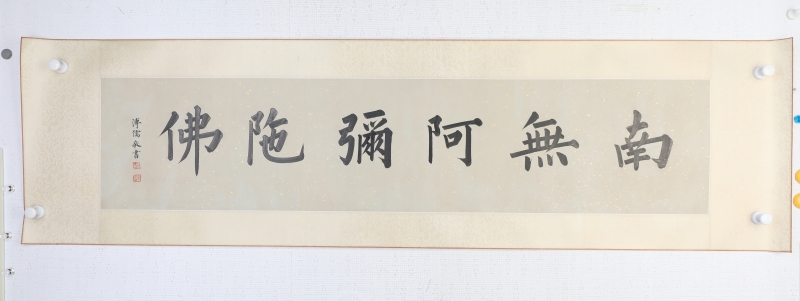 南無阿彌陁佛
溥儒敬書